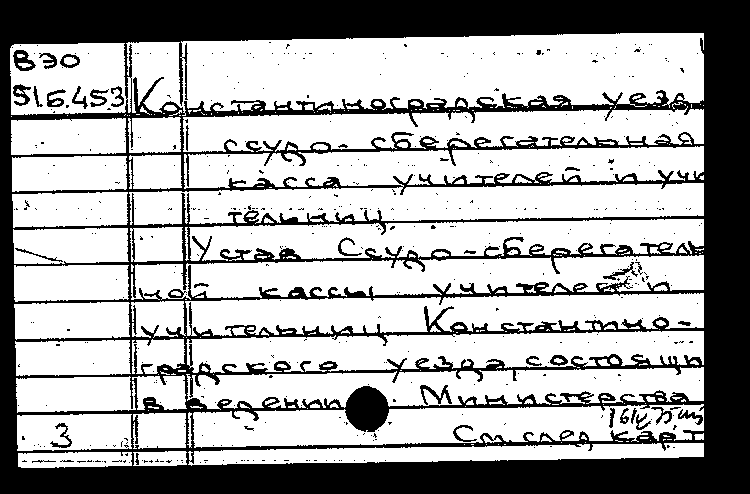 ВЭО
51Б.453
Константиноградская уезд.
ссудо-сберегательная
касса учителей и учи
тельниц.
Устав Ссудо-сберегатель
ной кассы учителей и
учительниц Константино-
градского уезда, состоящи
в ведении Министерства
3 См. след. карт